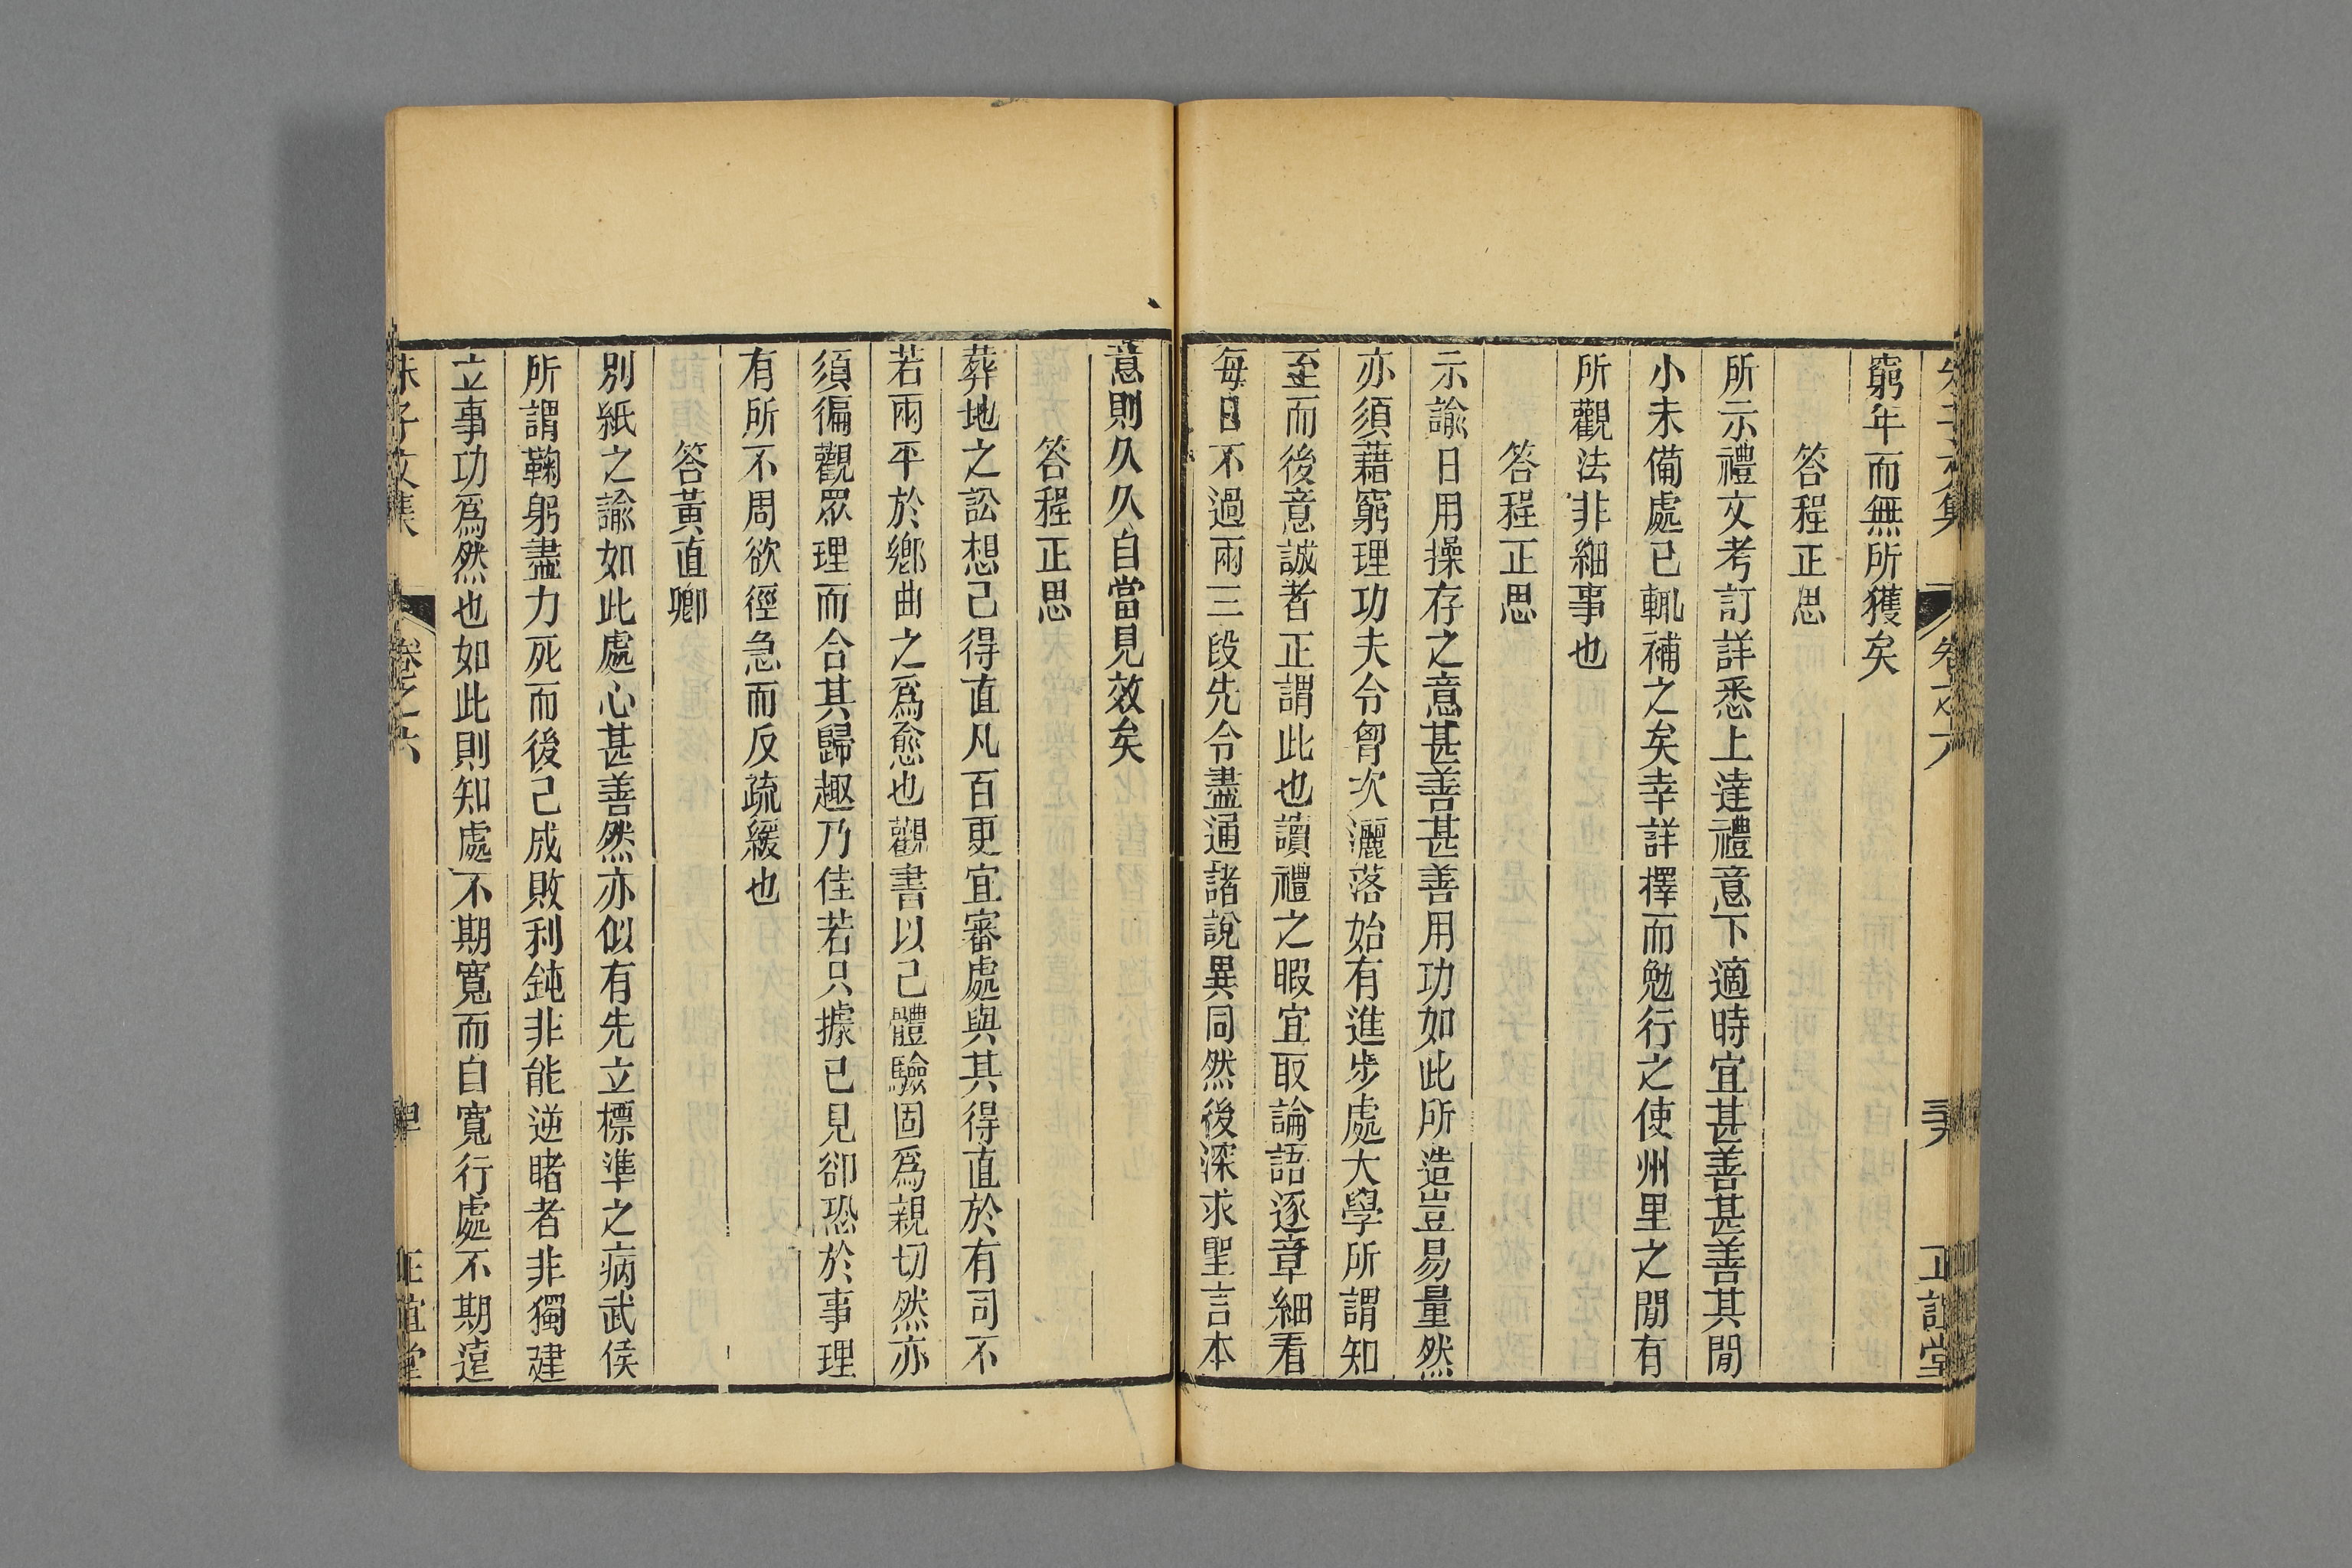 窮年而無所獲矣
答程正思
所示禮文考訂詳悉上達禮意下適時宜甚善甚善其閒
小未備處已輒補之矣幸詳擇而勉行之使州里之閒有
所觀法非細事也
答程正思
示諭日用操存之意甚善甚善用功如此所造豈易量然
亦須藉窮理功夫令胷次灑落始有進步處大學所謂知
至而後意誠者正謂此也讀禮之暇宜取論語逐章細看
每日不過兩三段先令盡通諸說異同然後深求聖言本
意則久久自當見效矣
答程正思
葬地之訟想已得直凡百更宜審處與其得直於有司不
若兩平於鄉曲之爲愈也觀書以己體驗固爲親切然亦
須徧觀眾理而合其歸趣乃佳若只據已見卻恐於事理
有所不周欲徑急而反疏緩也
答黃直卿
別紙之諭如此處心甚善然亦似有先立標準之病武侯
所謂鞠躬盡力死而後己成敗利鈍非能逆睹者非獨建
立事功爲然也如此則知處不期寬而自寬行處不期遠
朱子文集 卷之六 正誼堂